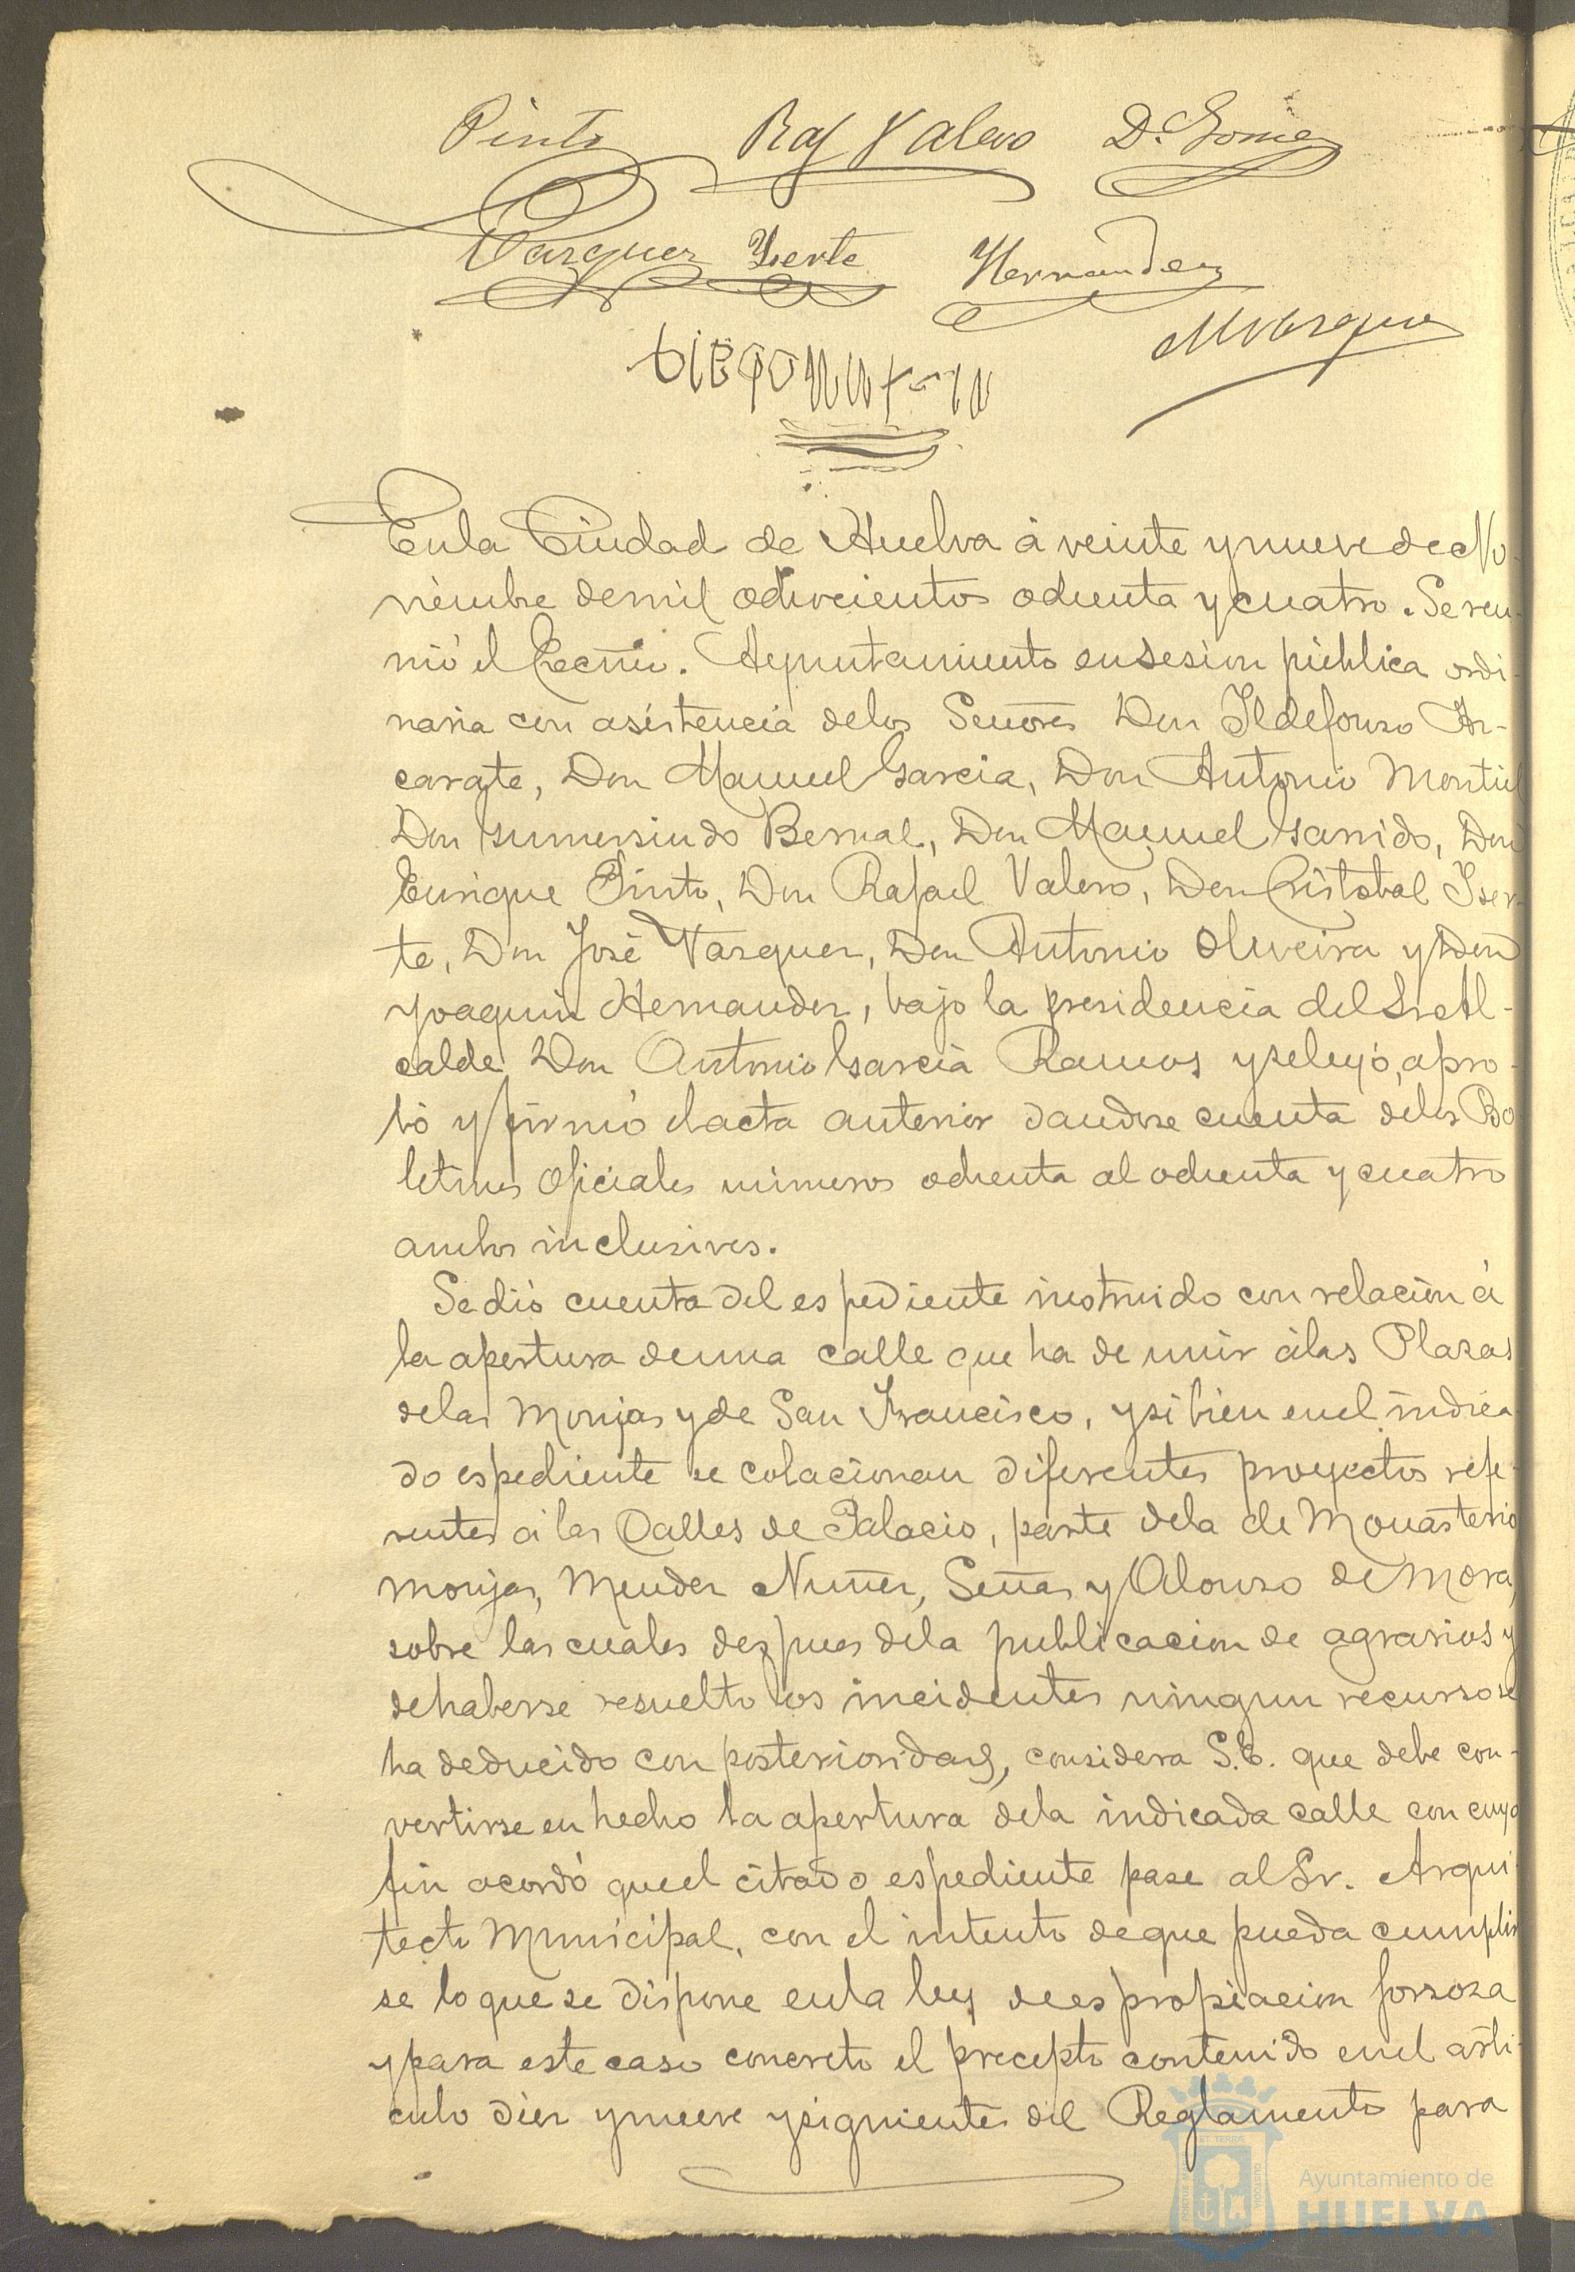 Pinto Raf Valero D. Gomez
Vazquez Yserte Hernandez
M Vazquez
En la Ciudad de Huelva á veinte y nueve de No-
viembre de mil ochocientos ochenta y cuatro. Se reu-
nió el Excmo. Ayuntamiento en sesion pública ordi-
naria con asistencia de los Señores Don Ildefonso Az-
carate, Don Manuel Garcia, Don Antonio Montiel
Don Gumersindo Bernal, Don Manuel Garrido, Don
Enrique Pinto, Don Rafael Valero, Don Cristobal Iser-
te, Don José Vazquez, Don Antonio Oliveira y Don
Joaquin Hernandez, bajo la presidencia del Sr. Al-
calde Don Antonio Garcia Ramos y se leyó, apro-
bó y firmó el acta anterior dandose cuenta de los Bo
letines oficiales números ochenta al ochenta y cuatro
ambos inclusives.
Se dió cuenta del espediente instruido con relacion á
la apertura de una calle que ha de unir á las Plazas
de las Monjas y de San Francisco, y si bien en el indica
do espediente se colacionan diferentes proyectos refe-
rentes á las Calles de Palacio, parte de la de Monasterio
Monjas, Mendez Nuñez, Señas y Alonso de Mora,
sobre las cuales despues de la publicacion de agravios y
de haberse resuelto los incidentes ningun recurso se
ha deducido con posterioridad, considera S.E. que debe con-
vertirse en hecho la apertura de la indicada calle con cuyo
fin acordó que el citado espediente pase al Sr. Arqui-
tecto Municipal, con el intento de que pueda cumplir
se lo que se dispone en la ley de espropiacion forzosa
y para este caso concreto el precepto contenido en el arti-
culo diez y nueve y siguientes del Reglamento para
Ayuntamiento de
HUELVA